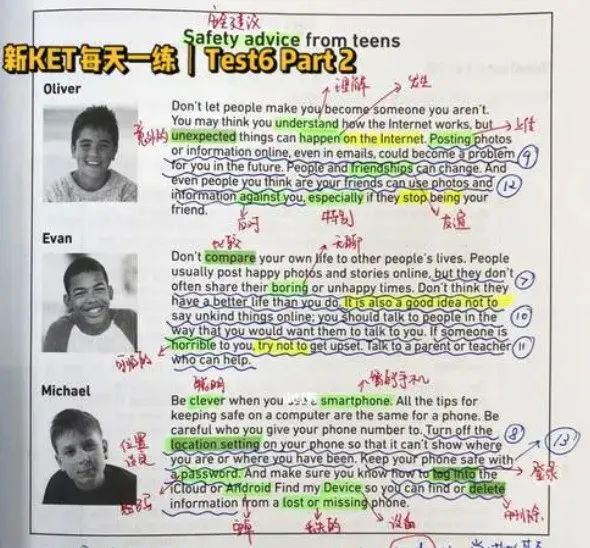 安全建议
Safety advice from teens
新KET每天一练 | Test6 Part 2
Oliver
理解 发生
Don't let people make you become someone you aren't.
You may think you understand how the Internet works, but
意外的 unexpected things can happen on the Internet. Posting photos 上传
or information online, even in emails, could become a problem
for you in the future. People and friendships can change. And 9
even people you think are your friends can use photos and 12
information against you, especially if they stop being your
friend.
反对 特别 友谊
Evan
比较 无聊
Don't compare your own life to other people's lives. People
usually post happy photos and stories online, but they don't
often share their boring or unhappy times. Don't think they 7
have a better life than you do. It is also a good idea not to
say unkind things online; you should talk to people in the 10
way that you would want them to talk to you. If someone is
horrible to you, try not to get upset. Talk to a parent or teacher 11
who can help.
可怕的
Michael
聪明 智能手机
Be clever when you use a smartphone. All the tips for
keeping safe on a computer are the same for a phone. Be
careful who you give your phone number to. Turn off the 8
位置 location setting on your phone so that it can't show where 13
设定 you are or where you have been. Keep your phone safe with
a password. And make sure you know how to log into the 登录
密码 iCloud or Android Find my Device so you can find or delete
information from a lost or missing phone. 删除
丢失的 设备